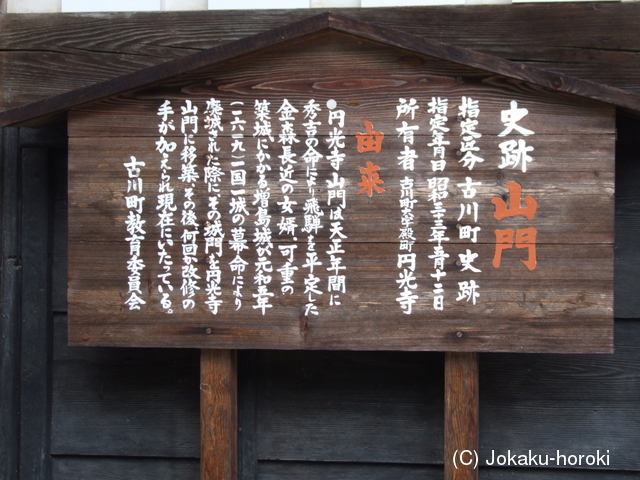 史跡 山門
指定区分 古川町史跡
指定年月日 昭和三十三年一月十二日
所有者 古川町大字殿町 円光寺
由来
●円光寺山門は天正年間に
秀吉の命により飛騨を平定した
金森長近の女婿、可重の
築城にかかる増島城が元和五年
(一六一九)一国一城の幕命により
廃城された際にその城門を円光寺
山門に移築、その後何回か改修の
手が加えられ現在にいたっている。
古川町教育委員会
(C) Jokaku-horoki